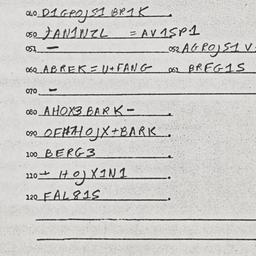 040 D1GPOJS1 BP1K.
050 ZAN1NZL = AV1SP1
051 — 052 AGPOJS1 V
060 ABREK = U+FANG 061 BRFG1S
070 —
080 AHOX3 BARK —.
090 OF#7HOJX+BARK.
100 BERG3.
110 + HOJX1N1.
120 FAL81S.